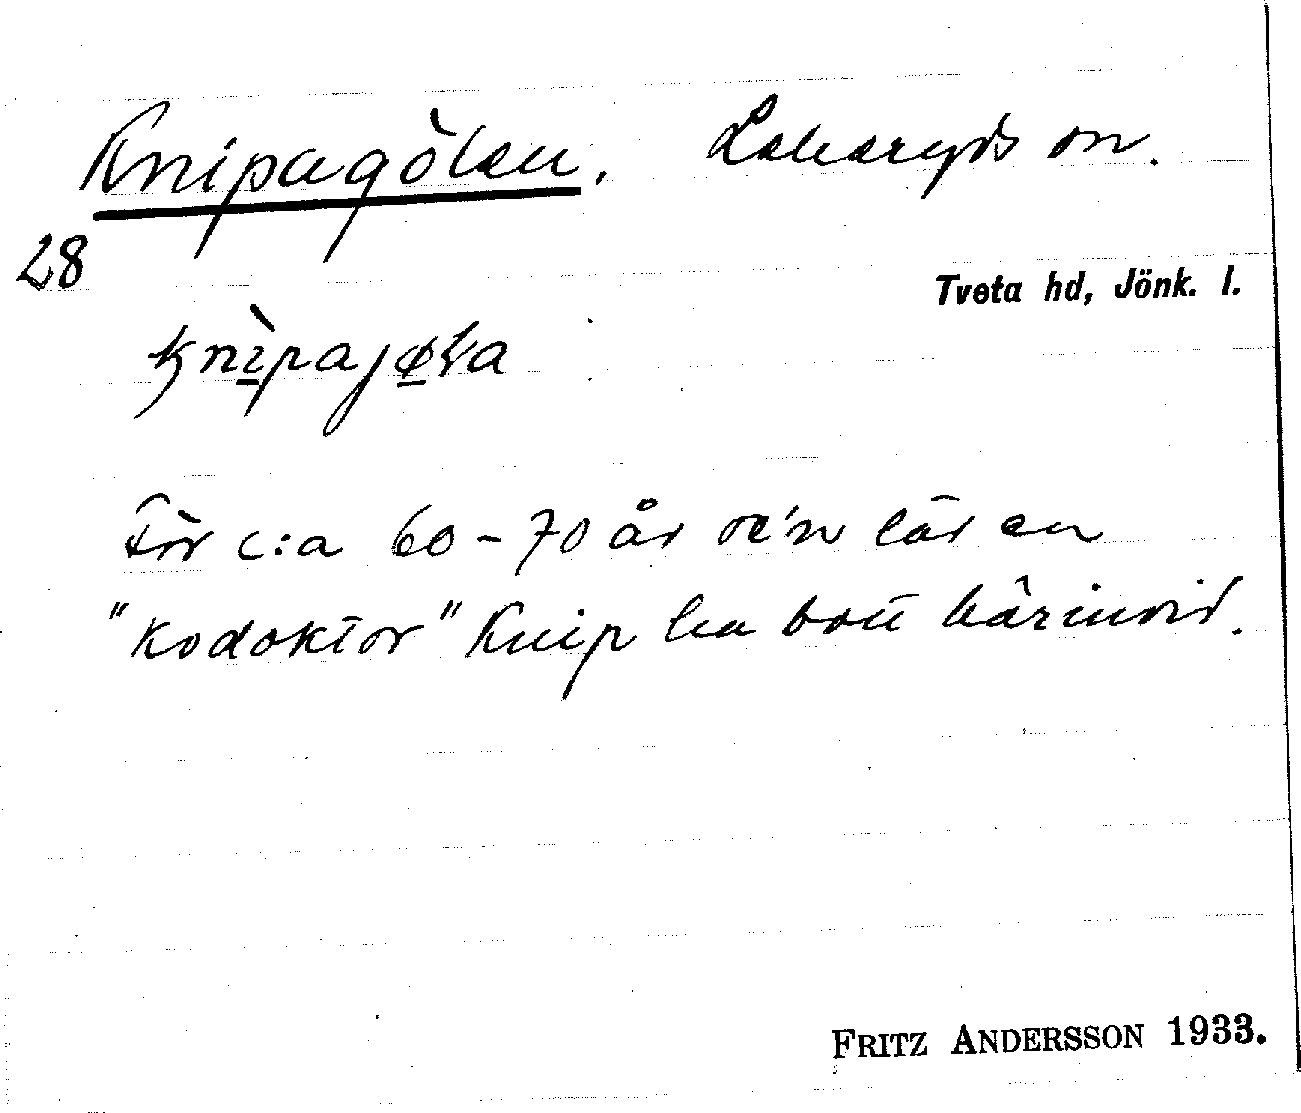 Knipagölen. Lekeryds sn.
28
Tveta hd, Jönk. l.
knìpajøla
För c:a 60-70 år se'n lär en
"kodoktor" Knip ha bott härinvid.
FRITZ ANDERSSON 1933.